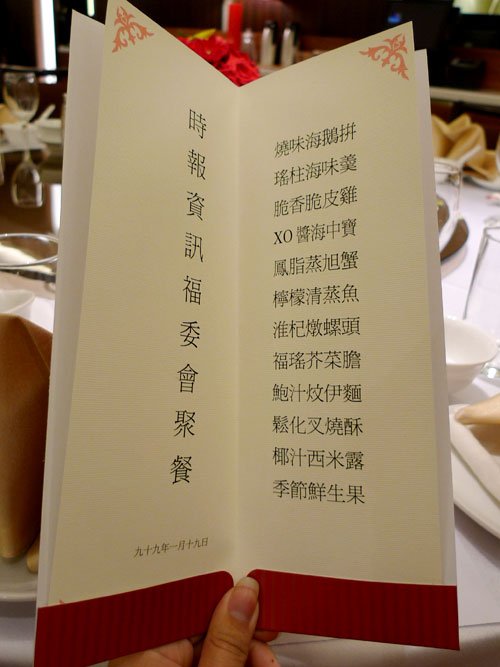 時報資訊福委會聚餐
九十九年一月十九日
燒味海鵝拼
瑤柱海味羹
脆香脆皮雞
XO 醬海中寶
鳳脂蒸旭蟹
檸檬清蒸魚
淮杞燉螺頭
福瑤芥菜膽
鮑汁炆伊麵
鬆化叉燒酥
椰汁西米露
季節鮮生果